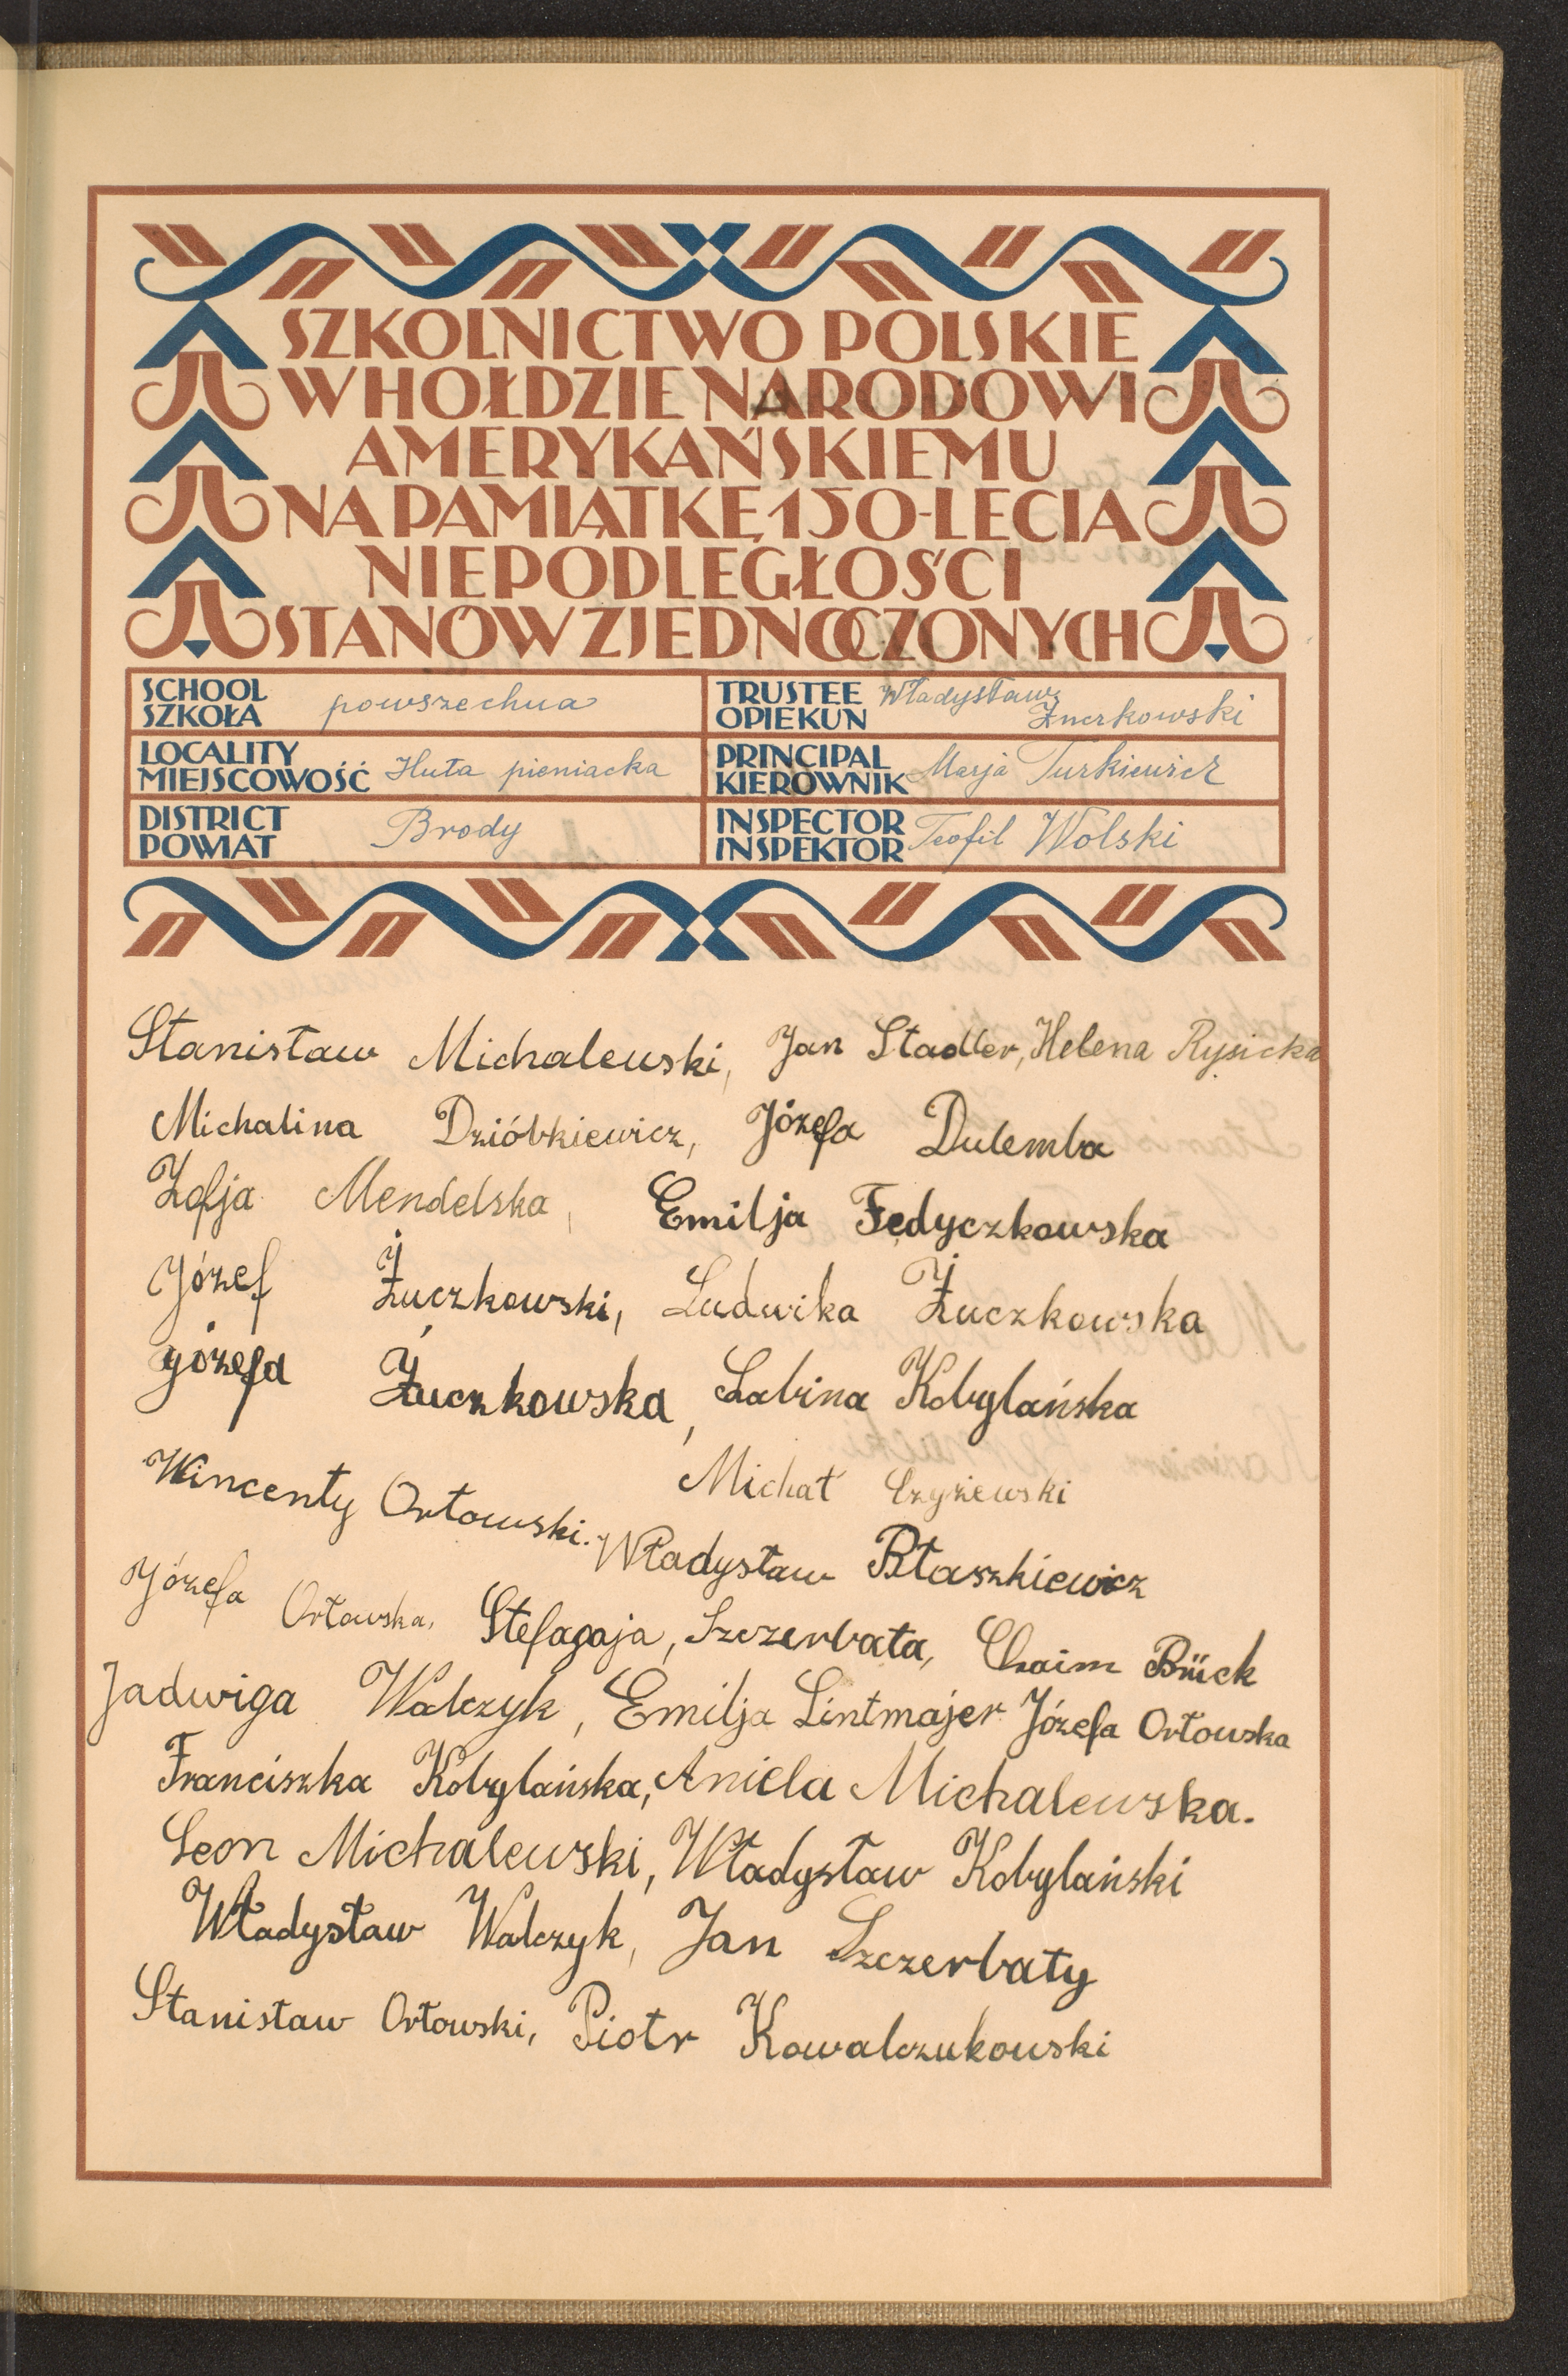 SZKOLNICTWO POLSKIE
W HOŁDZIE NARODOWI
AMERYKAŃSKIEMU
NA PAMIĄTKĘ 150-LECIA
NIEPODLEGŁOŚCI
STANÓW ZJEDNOCZONYCH
SCHOOL
SZKOŁA
powszechna
TRUSTEE
OPIEKUN
Władysław
Żuczkowski
LOCALITY
MIEJSCOWOŚĆ
Huta pieniacka
PRINCIPAL
KIEROWNIK
Marja Turkiewicz
DISTRICT
POWIAT
Brody
INSPECTOR
INSPEKTOR
Teofil Wolski
Stanisław Michalewski, Jan Stadler, Helena Rysicka
Michalina Dzióbkiewicz, Józefa Dulemba
Zofja Mendelska, Emilja Fedyczkowska
Józef Żuczkowski, Ludwika Żuczkowska
Józefa Żuczkowska, Sabina Kobylańska
Wincenty Orłowski. Michał Czyżewski
Władysław Błaszkiewicz
Józefa Orłowska, Stefagaja, Szczerbata, Chaim Bück
Jadwiga Walczyk, Emilja Lintmajer Józefa Orłowska
Franciszka Kobylańska, Aniela Michalewska.
Leon Michalewski, Władysław Kobylański
Władysław Walczyk, Jan Szczerbaty
Stanisław Orłowski, Piotr Kowalczukowski